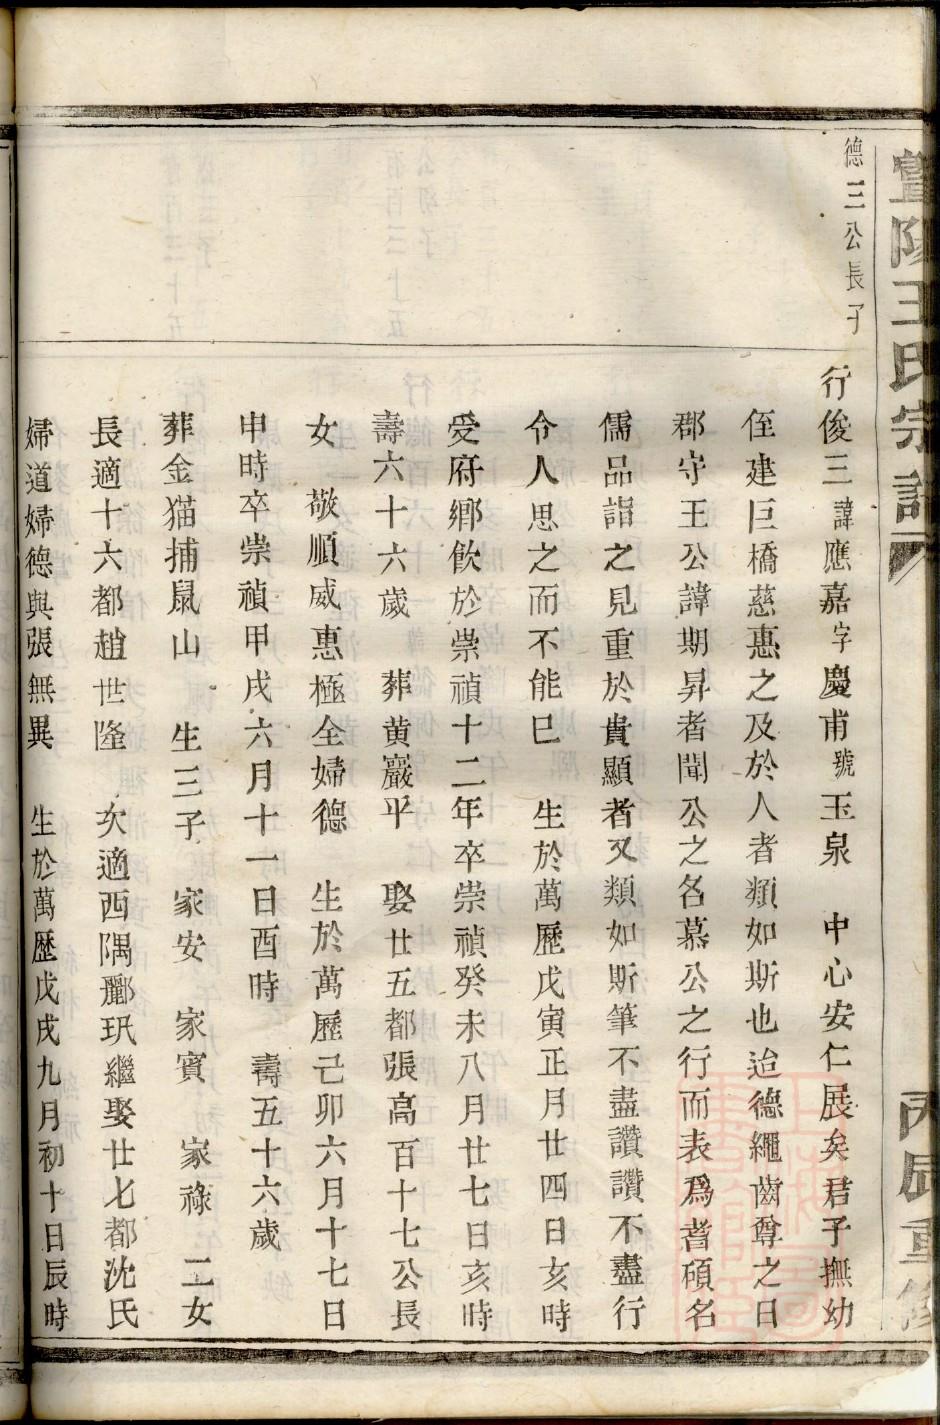 暨陽王氏宗譜
丙辰重修
德三公長子
行俊三諱應嘉字慶甫號玉泉　中心安仁展矣君子撫幼
侄建巨橋慈惠之及於人者類如斯也迨德繩齒尊之日
郡守王公諱期昇者聞公之名慕公之行而表爲耆碩名
儒品詣之見重於貴顯者又類如斯筆不盡讚讚不盡行
令人思之而不能已　生於萬歷戊寅正月廿四日亥時
受府鄉飲於崇禎十二年卒崇禎癸未八月廿七日亥時
壽六十六歲　葬黄巖平　娶廿五都張高百十七公長
女　敬順威惠極全婦德　生於萬歷己卯六月十七日
申時卒崇禎甲戌六月十一日酉時　壽五十六歲
葬金猫捕鼠山　生三子　家安　家賓　家祿　二女
長適十六都趙世隆　次適西隅酈玳繼娶廿七都沈氏
婦道婦德與張無異　生於萬歷戊戌九月初十日辰時